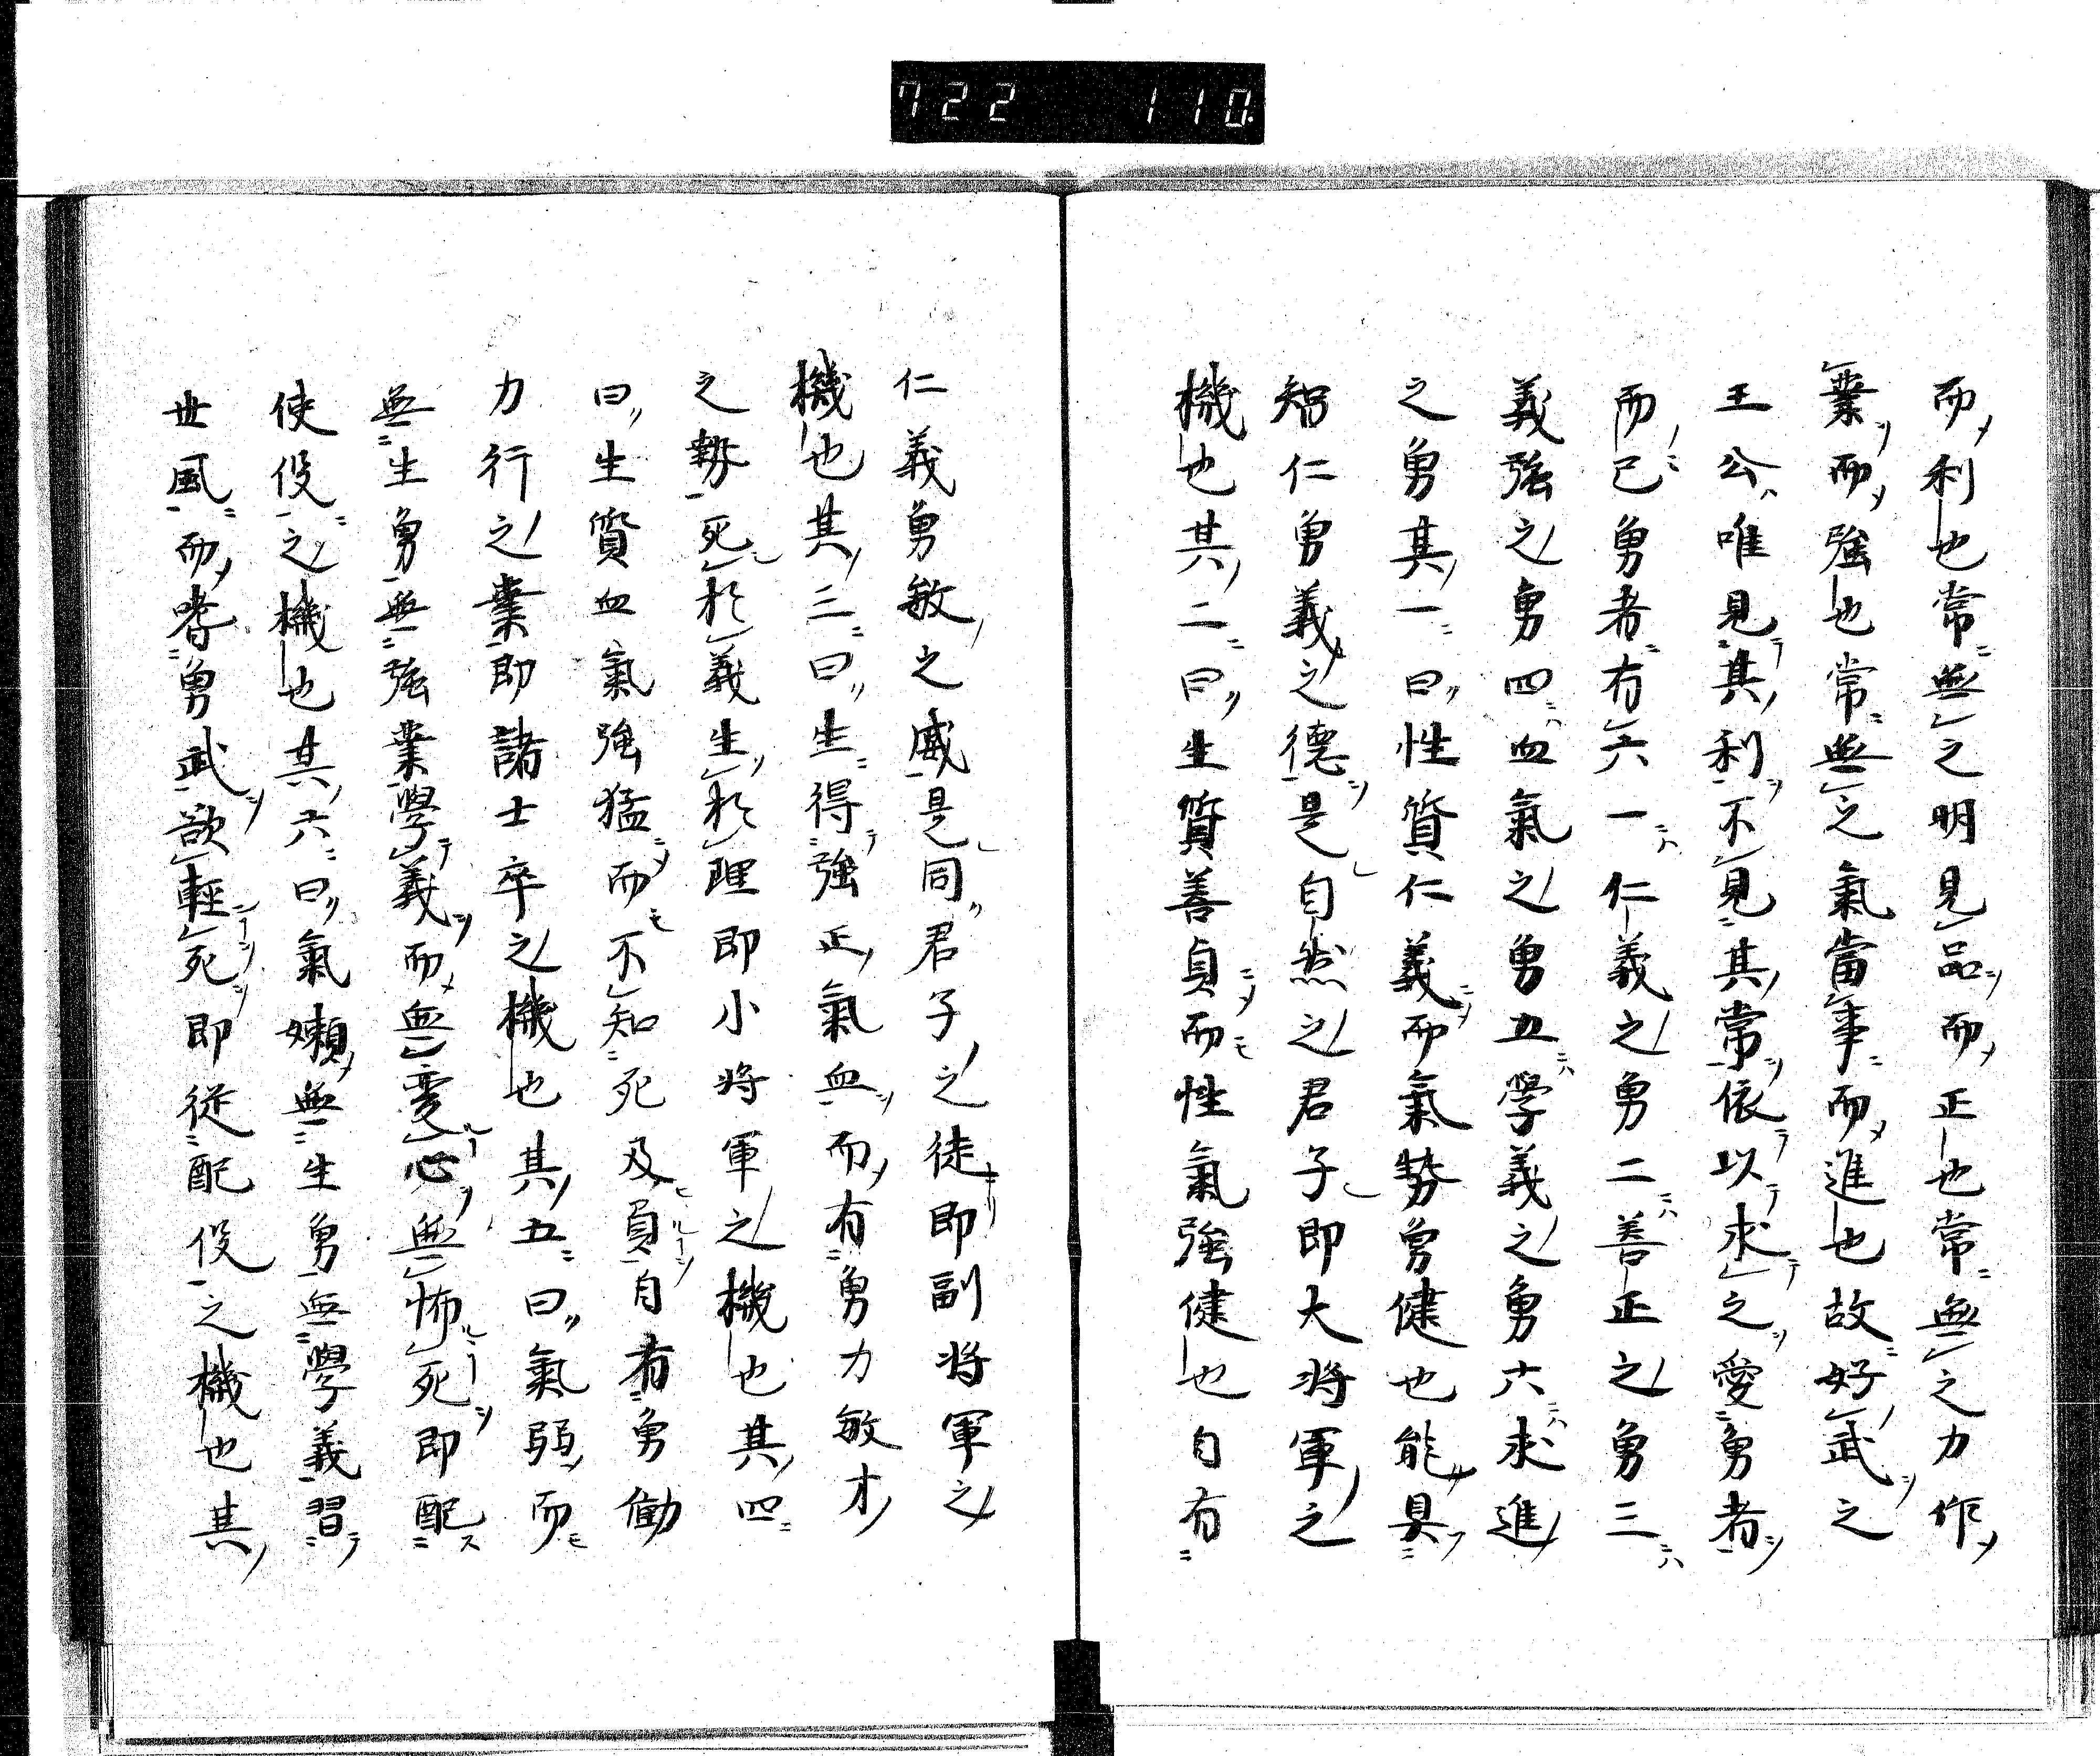 722 110.
而利也常無之明見品而正也常無之力作
業而強也常無之氣當事而進也故好武之
王公唯見其利不見其常依以求之愛勇者
而已勇者有六一仁義之勇二善正之勇三
義強之勇四血氣之勇五學義之勇六求進
之勇其一曰性質仁義而氣勢勇健也能具
智仁勇義之德是自然之君子即大将軍之
機也其二曰生質善貞而性氣強健也自有
仁義勇敏之威是同君子之徒即副将軍之
機也其三曰生得強正氣血而有勇力敏才
之勢死於義生於理即小将軍之機也其四
曰生質血氣強猛而不知死及負自有勇働
力行之業即諸士卒之機也其五曰氣弱而
無生勇無強業學義而無変心無怖死即配
使役之機也其六曰氣嬾無生勇無學義習
世風而嗜勇武欲輕死即従配役之機也其